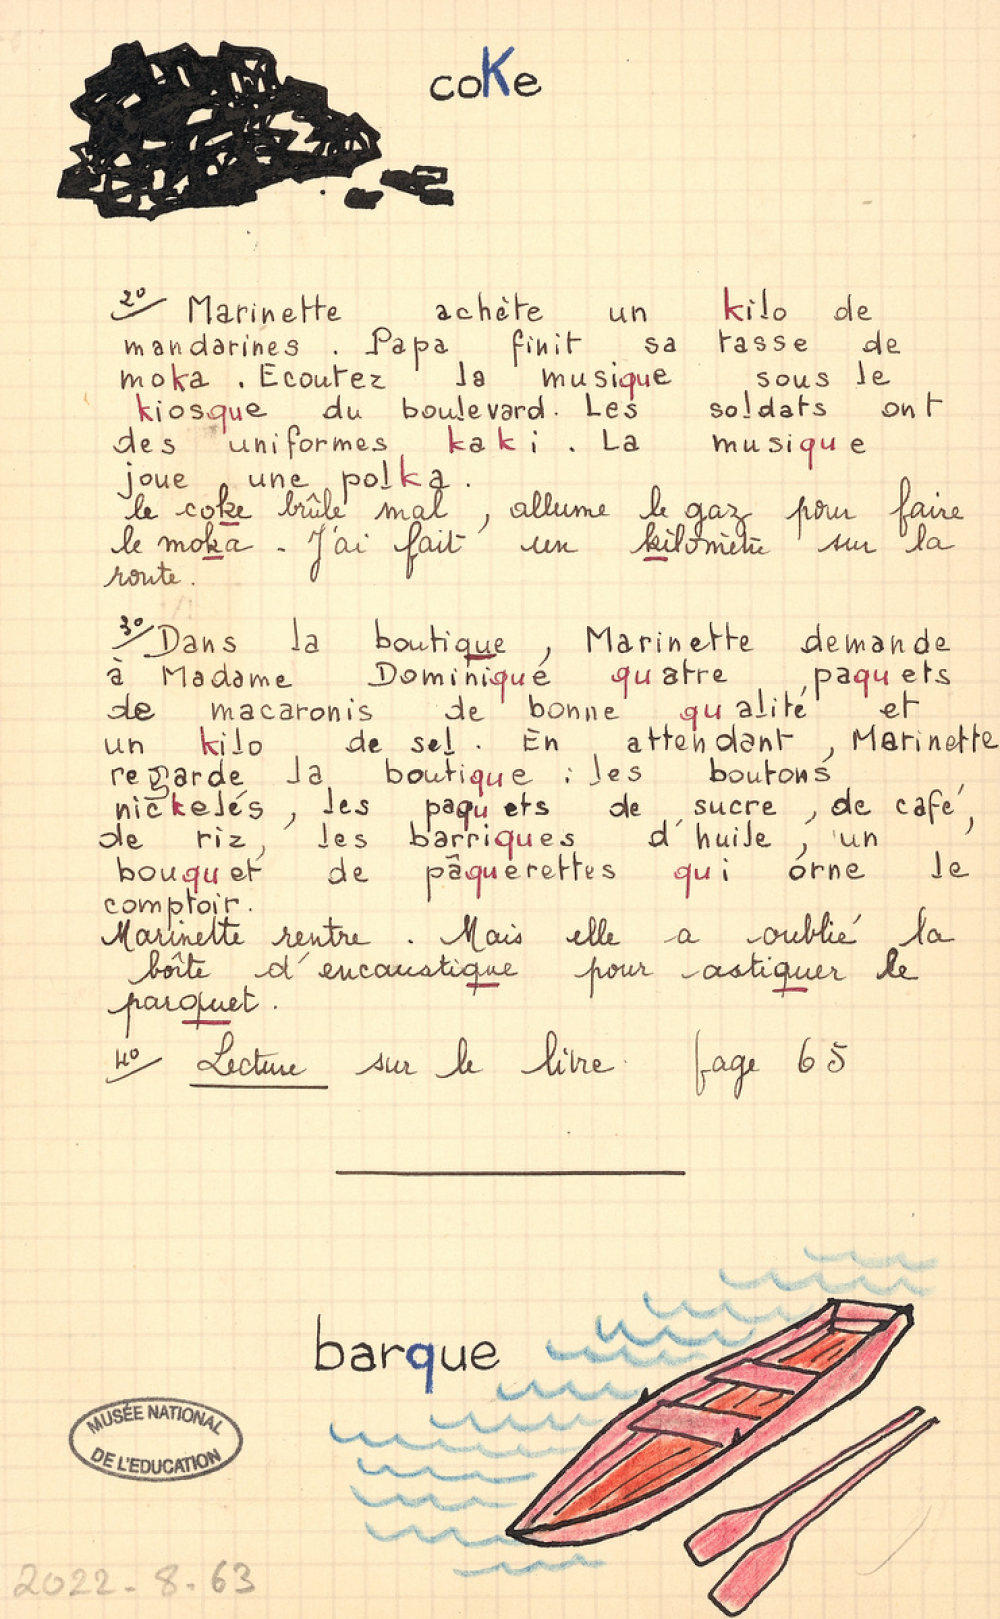 coKe
2º/ Marinette achète un kilo de
mandarines . Papa finit sa tasse de
moka . Ecoutez la musique sous le
kiosque du boulevard. Les soldats ont
des uniformes kaki . La musique
joue une polka .
le coke brûle mal , allume le gaz pour faire
le moka . J'ai fait un kilomètre sur la
route .
3º/ Dans la boutique , Marinette demande
à Madame Dominique quatre paquets
de macaronis de bonne qualité et
un kilo de sel . En attendant , Marinette
regarde la boutique : les boutons
nickelés , les paquets de sucre , de café ,
de riz , les barriques d'huile , un
bouquet de pâquerettes qui orne le
comptoir .
Marinette rentre . Mais elle a oublié la
boîte d'encaustique pour astiquer le
parquet .
4º/ Lecture sur le livre page 65
barque
MUSÉE NATIONAL
DE L'EDUCATION
2022 - 8 - 63